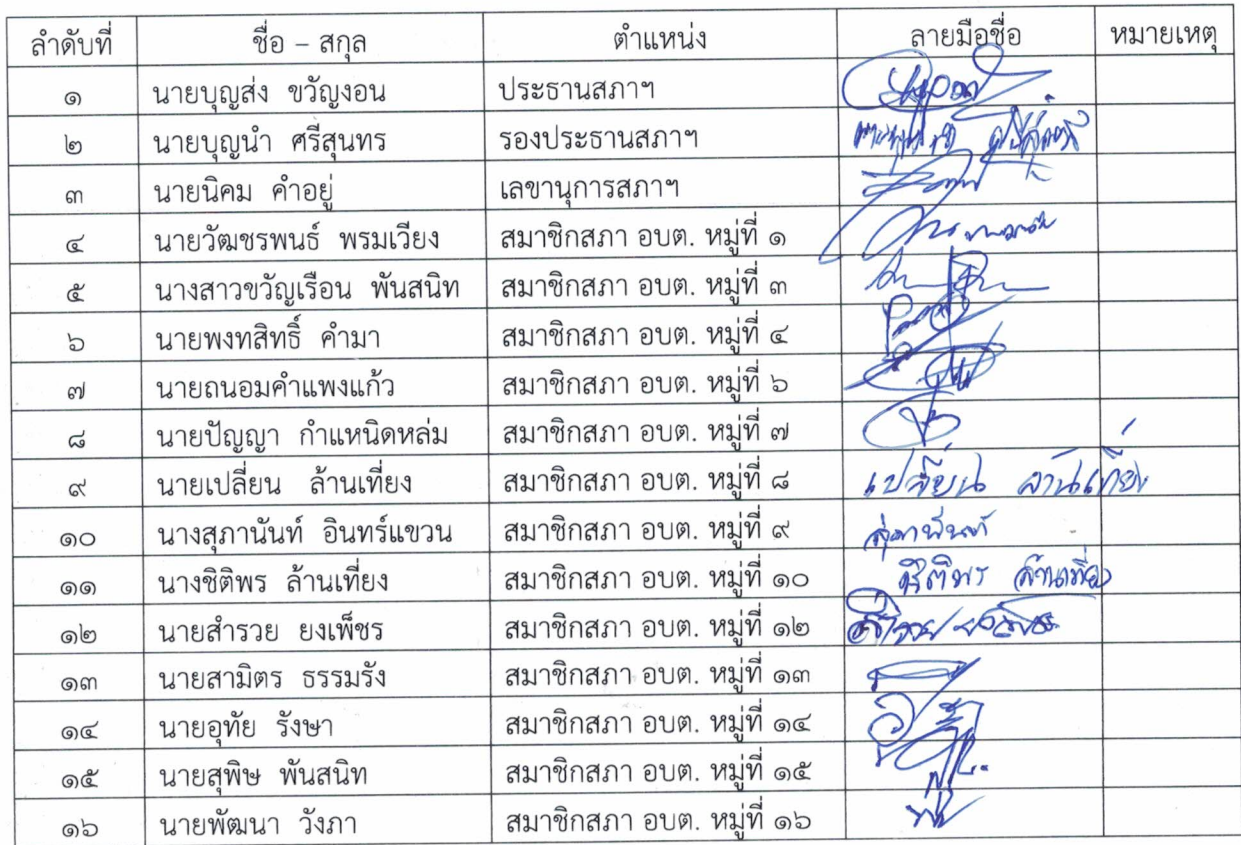 ลำดับที่ ชื่อ – สกุล ตำแหน่ง ลายมือชื่อ หมายเหตุ
๑ นายบุญส่ง ขวัญงอน ประธานสภาฯ
๒ นายบุญนำ ศรีสุนทร รองประธานสภาฯ
๓ นายนิคม คำอยู่ เลขานุการสภาฯ
๔ นายวัฒชรพนธ์ พรมเวียง สมาชิกสภา อบต. หมู่ที่ ๑
๕ นางสาวขวัญเรือน พันสนิท สมาชิกสภา อบต. หมู่ที่ ๓
๖ นายพงทสิทธิ์ คำมา สมาชิกสภา อบต. หมู่ที่ ๔
๗ นายถนอมคำแพงแก้ว สมาชิกสภา อบต. หมู่ที่ ๖
๘ นายปัญญา กำแหนิดหล่ม สมาชิกสภา อบต. หมู่ที่ ๗
๙ นายเปลี่ยน ล้านเที่ยง สมาชิกสภา อบต. หมู่ที่ ๘ เปลี่ยน ล้านเที่ยง
๑๐ นางสุภานันท์ อินทร์แขวน สมาชิกสภา อบต. หมู่ที่ ๙
๑๑ นางชิติพร ล้านเที่ยง สมาชิกสภา อบต. หมู่ที่ ๑๐ ชิติพร ล้านเที่ยง
๑๒ นายสำรวย ยงเพ็ชร สมาชิกสภา อบต. หมู่ที่ ๑๒
๑๓ นายสามิตร ธรรมรัง สมาชิกสภา อบต. หมู่ที่ ๑๓
๑๔ นายอุทัย รังษา สมาชิกสภา อบต. หมู่ที่ ๑๔
๑๕ นายสุพิษ พันสนิท สมาชิกสภา อบต. หมู่ที่ ๑๕
๑๖ นายพัฒนา วังภา สมาชิกสภา อบต. หมู่ที่ ๑๖